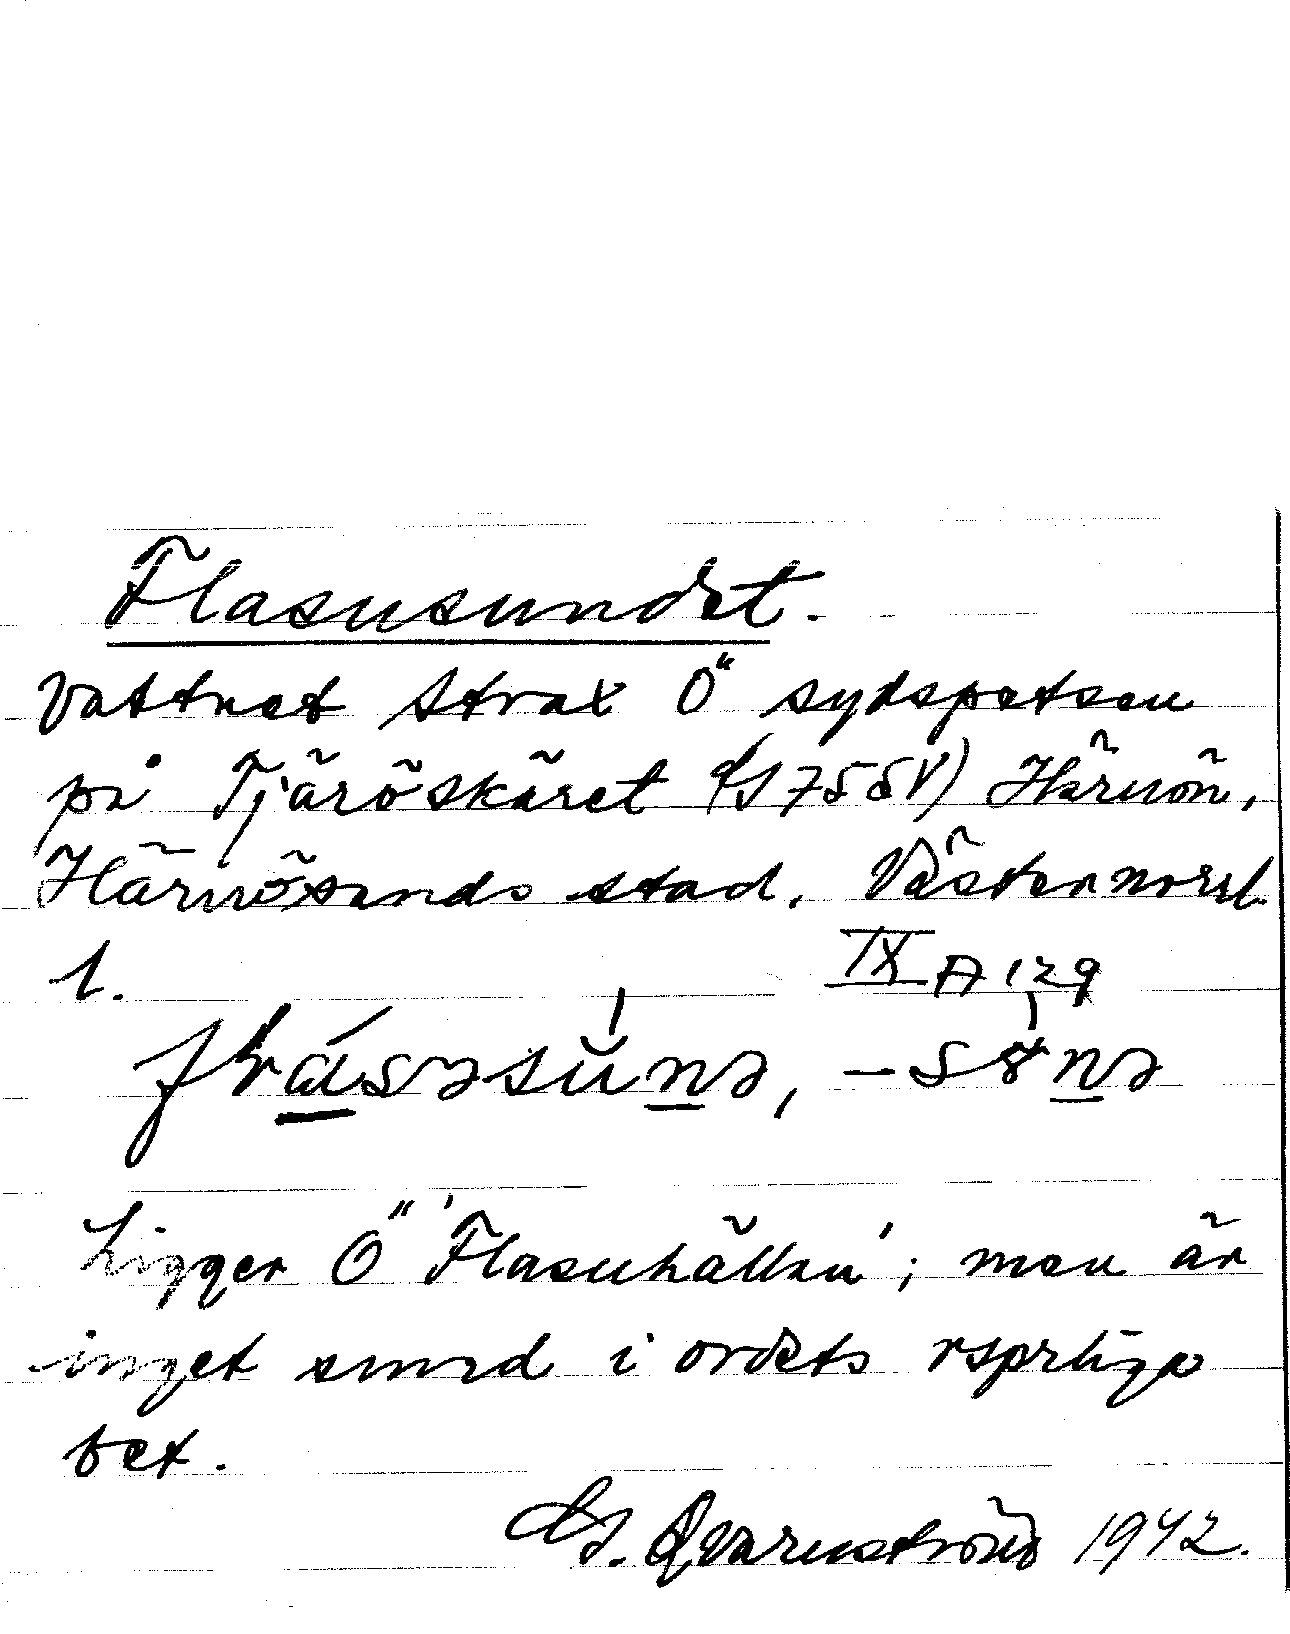 Flasusundet.
Vattnet strax Ö" sydspetsen
på Tjäröskäret (S 75 SV) Härnön,
Härnösands stad, Västernorrl.
l.
IX A 129
Ligger Ö" 'Flasuhällan'; men är
inget sund i ordets
bet.
G. Qvarnström 1942.